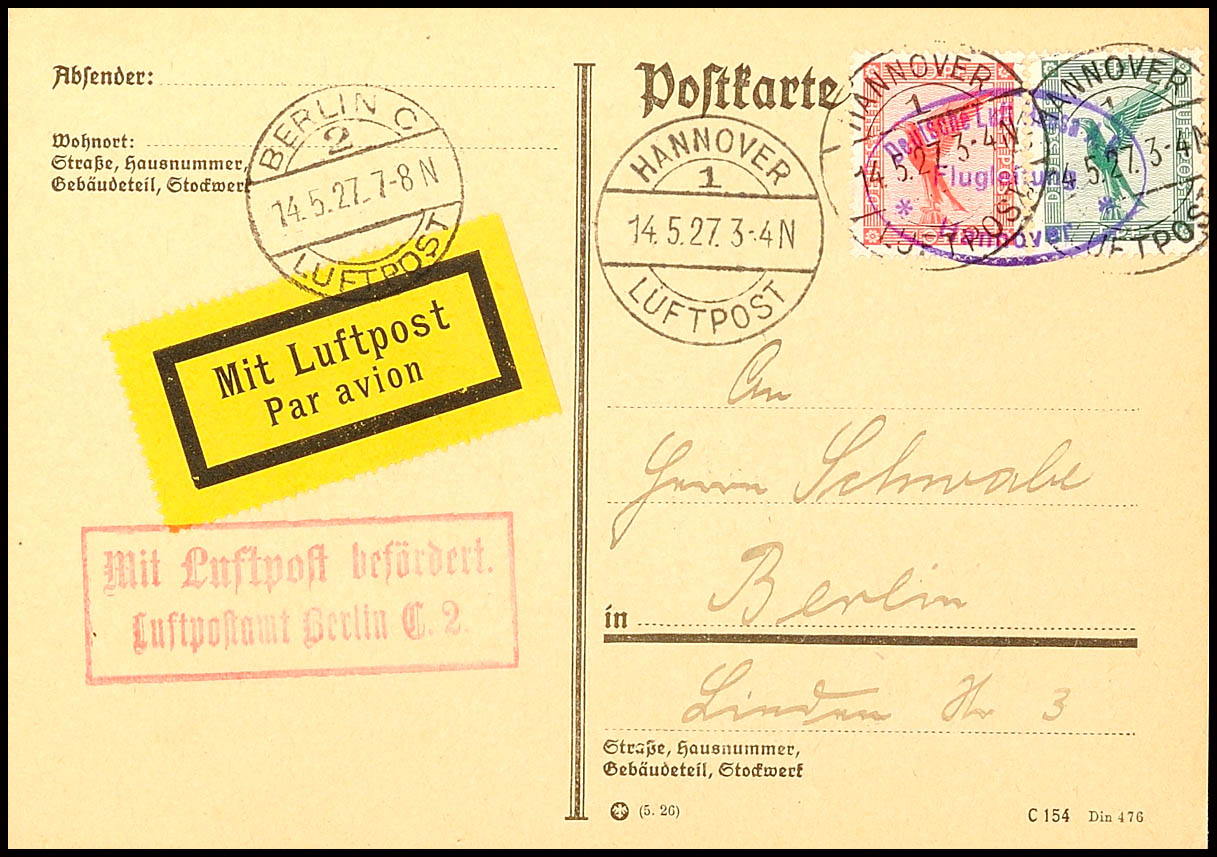 Absender:
Wohnort:
Straße, Hausnummer,
Gebäudeteil, Stockwerk
BERLIN C
2
14.5.27.7-8 N
LUFTPOST
Mit Luftpost
Par avion
Mit Luftpost befördert.
Luftpostamt Berlin C. 2.
Postkarte
HANNOVER
1
14.5.27.3-4N
LUFTPOST
HANNOVER
1
14.5.27.3-4N
LUFTPOST
HANNOVER
1
14.5.27.3-4N
LUFTPOST
Deutsche Luft
Flugleitung
* *
Hannover
An
Herrn Schwabe
in Berlin
Linden Str 3
Straße, Hausnummer,
Gebäudeteil, Stockwerk
(5. 26)
C 154 Din 476